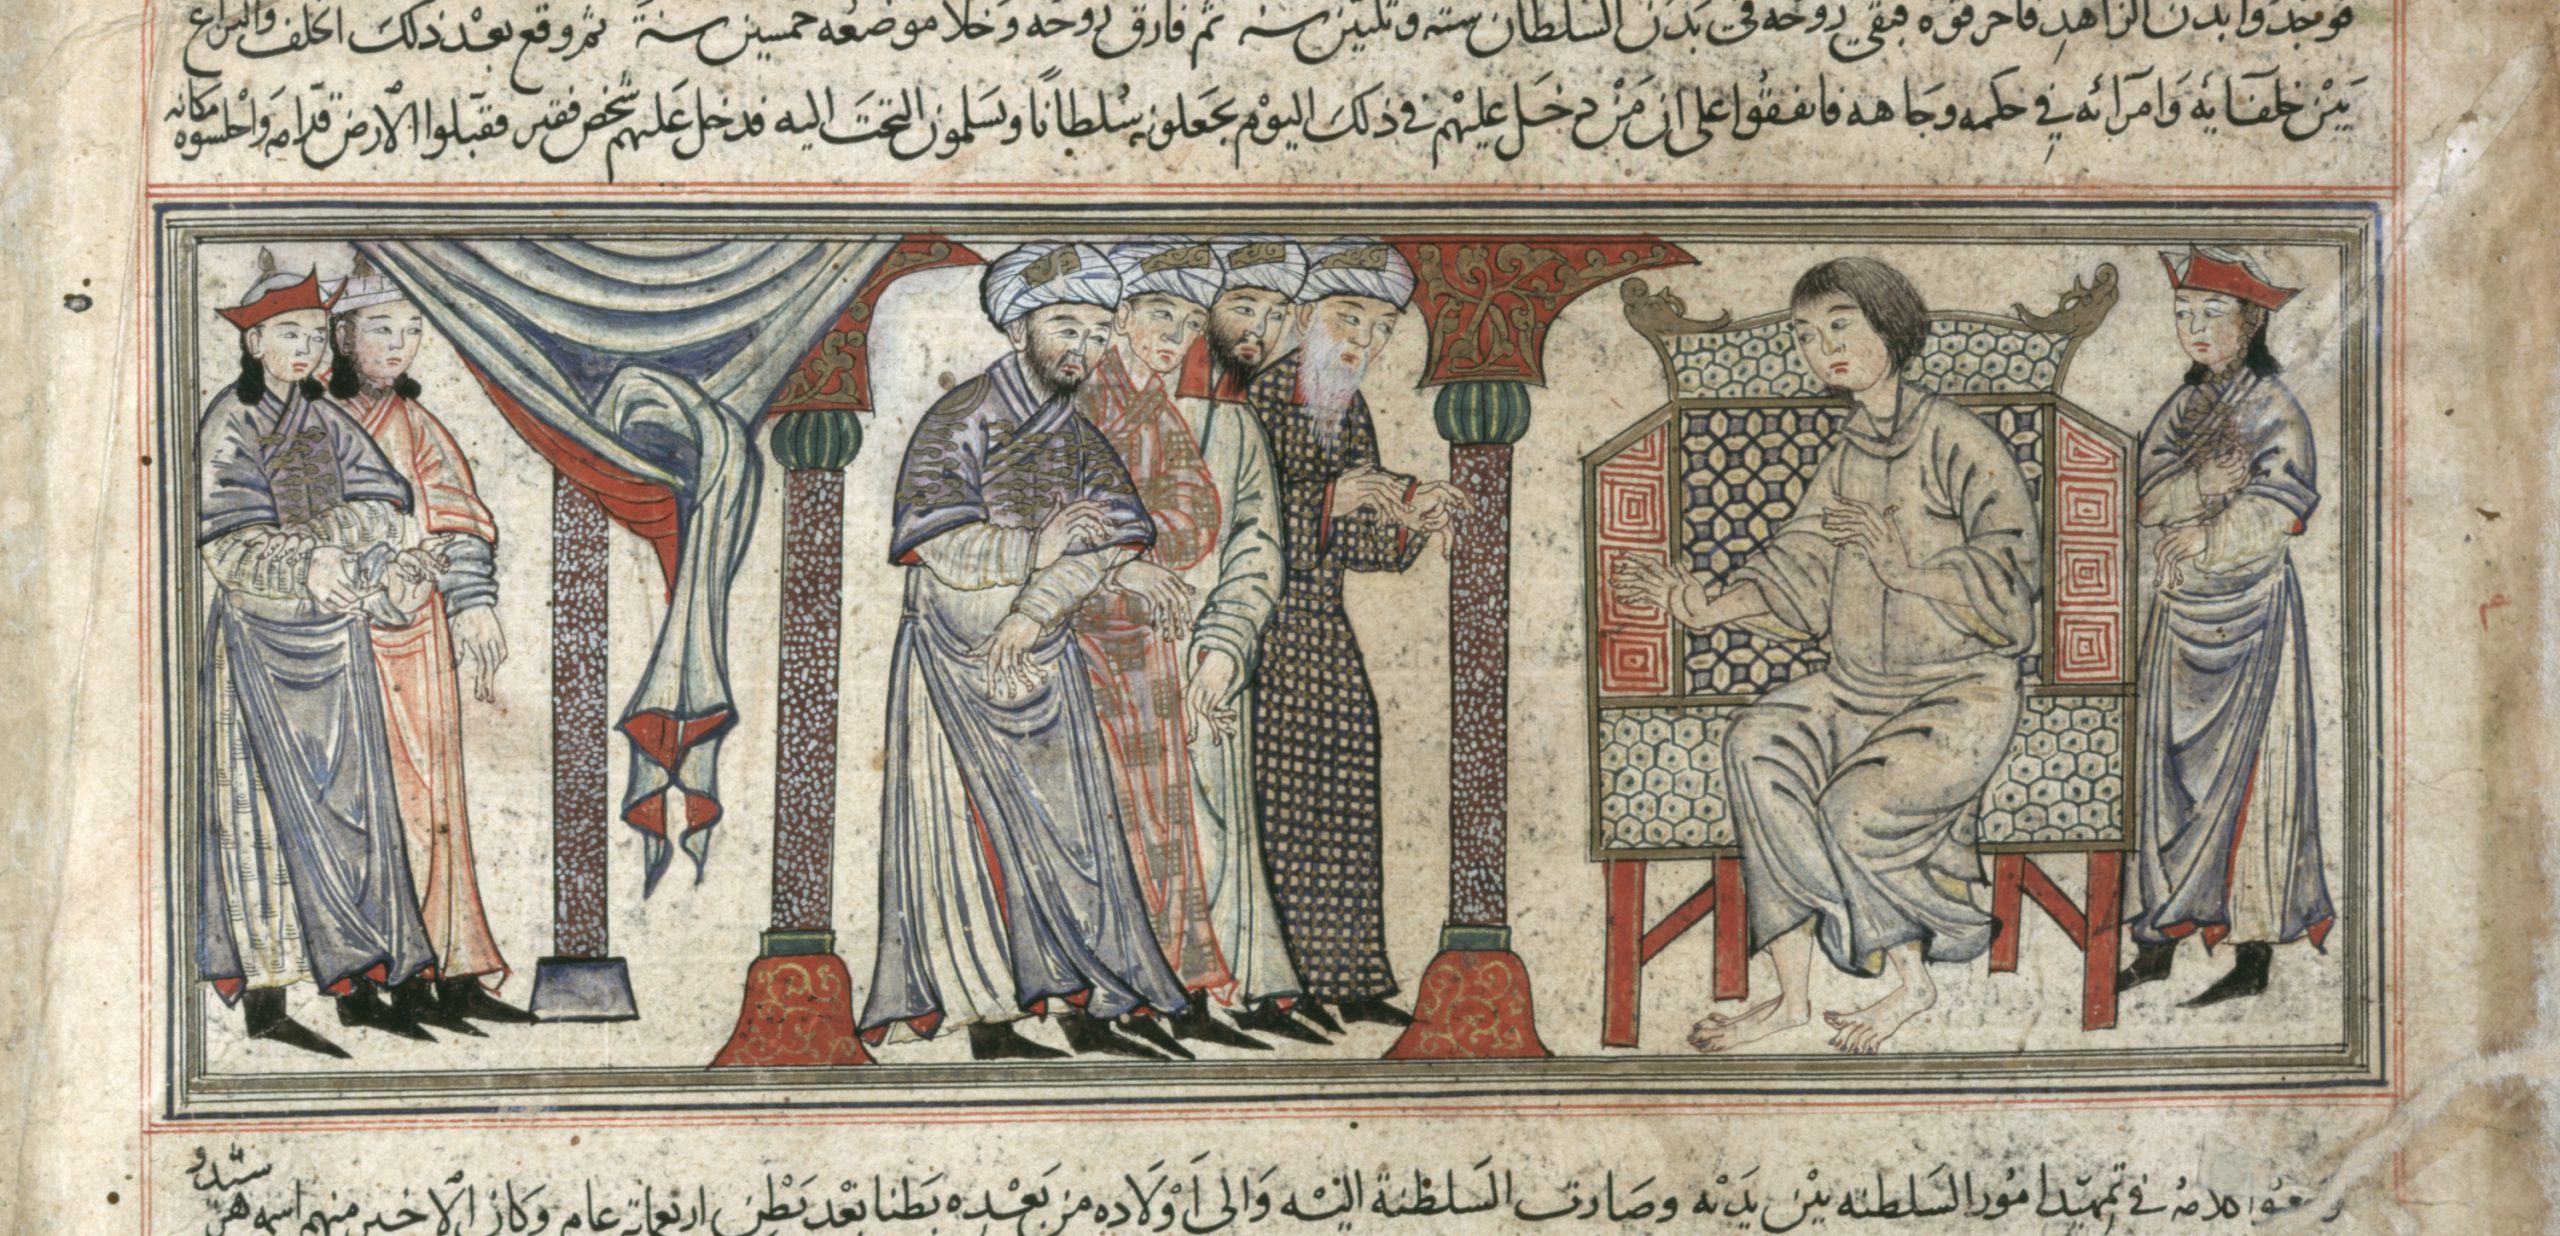 فوجدوا بدن الزاهد فاحرقوه فبقي روحه في بدن السلطان ستة وثلثين سنه ثم فارق روحه وخلا موضعه خمسين سنة ثم وقع بعد ذلك الخلف والنزاع
بين خلفائه وامرائه في حكمه وجاهه فاتفقوا على ان من دخل عليهم في ذلك اليوم يجعلونه سلطانا ويسلمون التخت اليه فدخل عليهم شخص فقير فقبلوا الارض قدامه واجلسوه مكانه
في تمهيد امور السلطنه بين يديه وصارت السلطنة اليه والى اولاده من بعده بطنا بعد بطن اربعماية عام وكان الاخير منهم اسمه